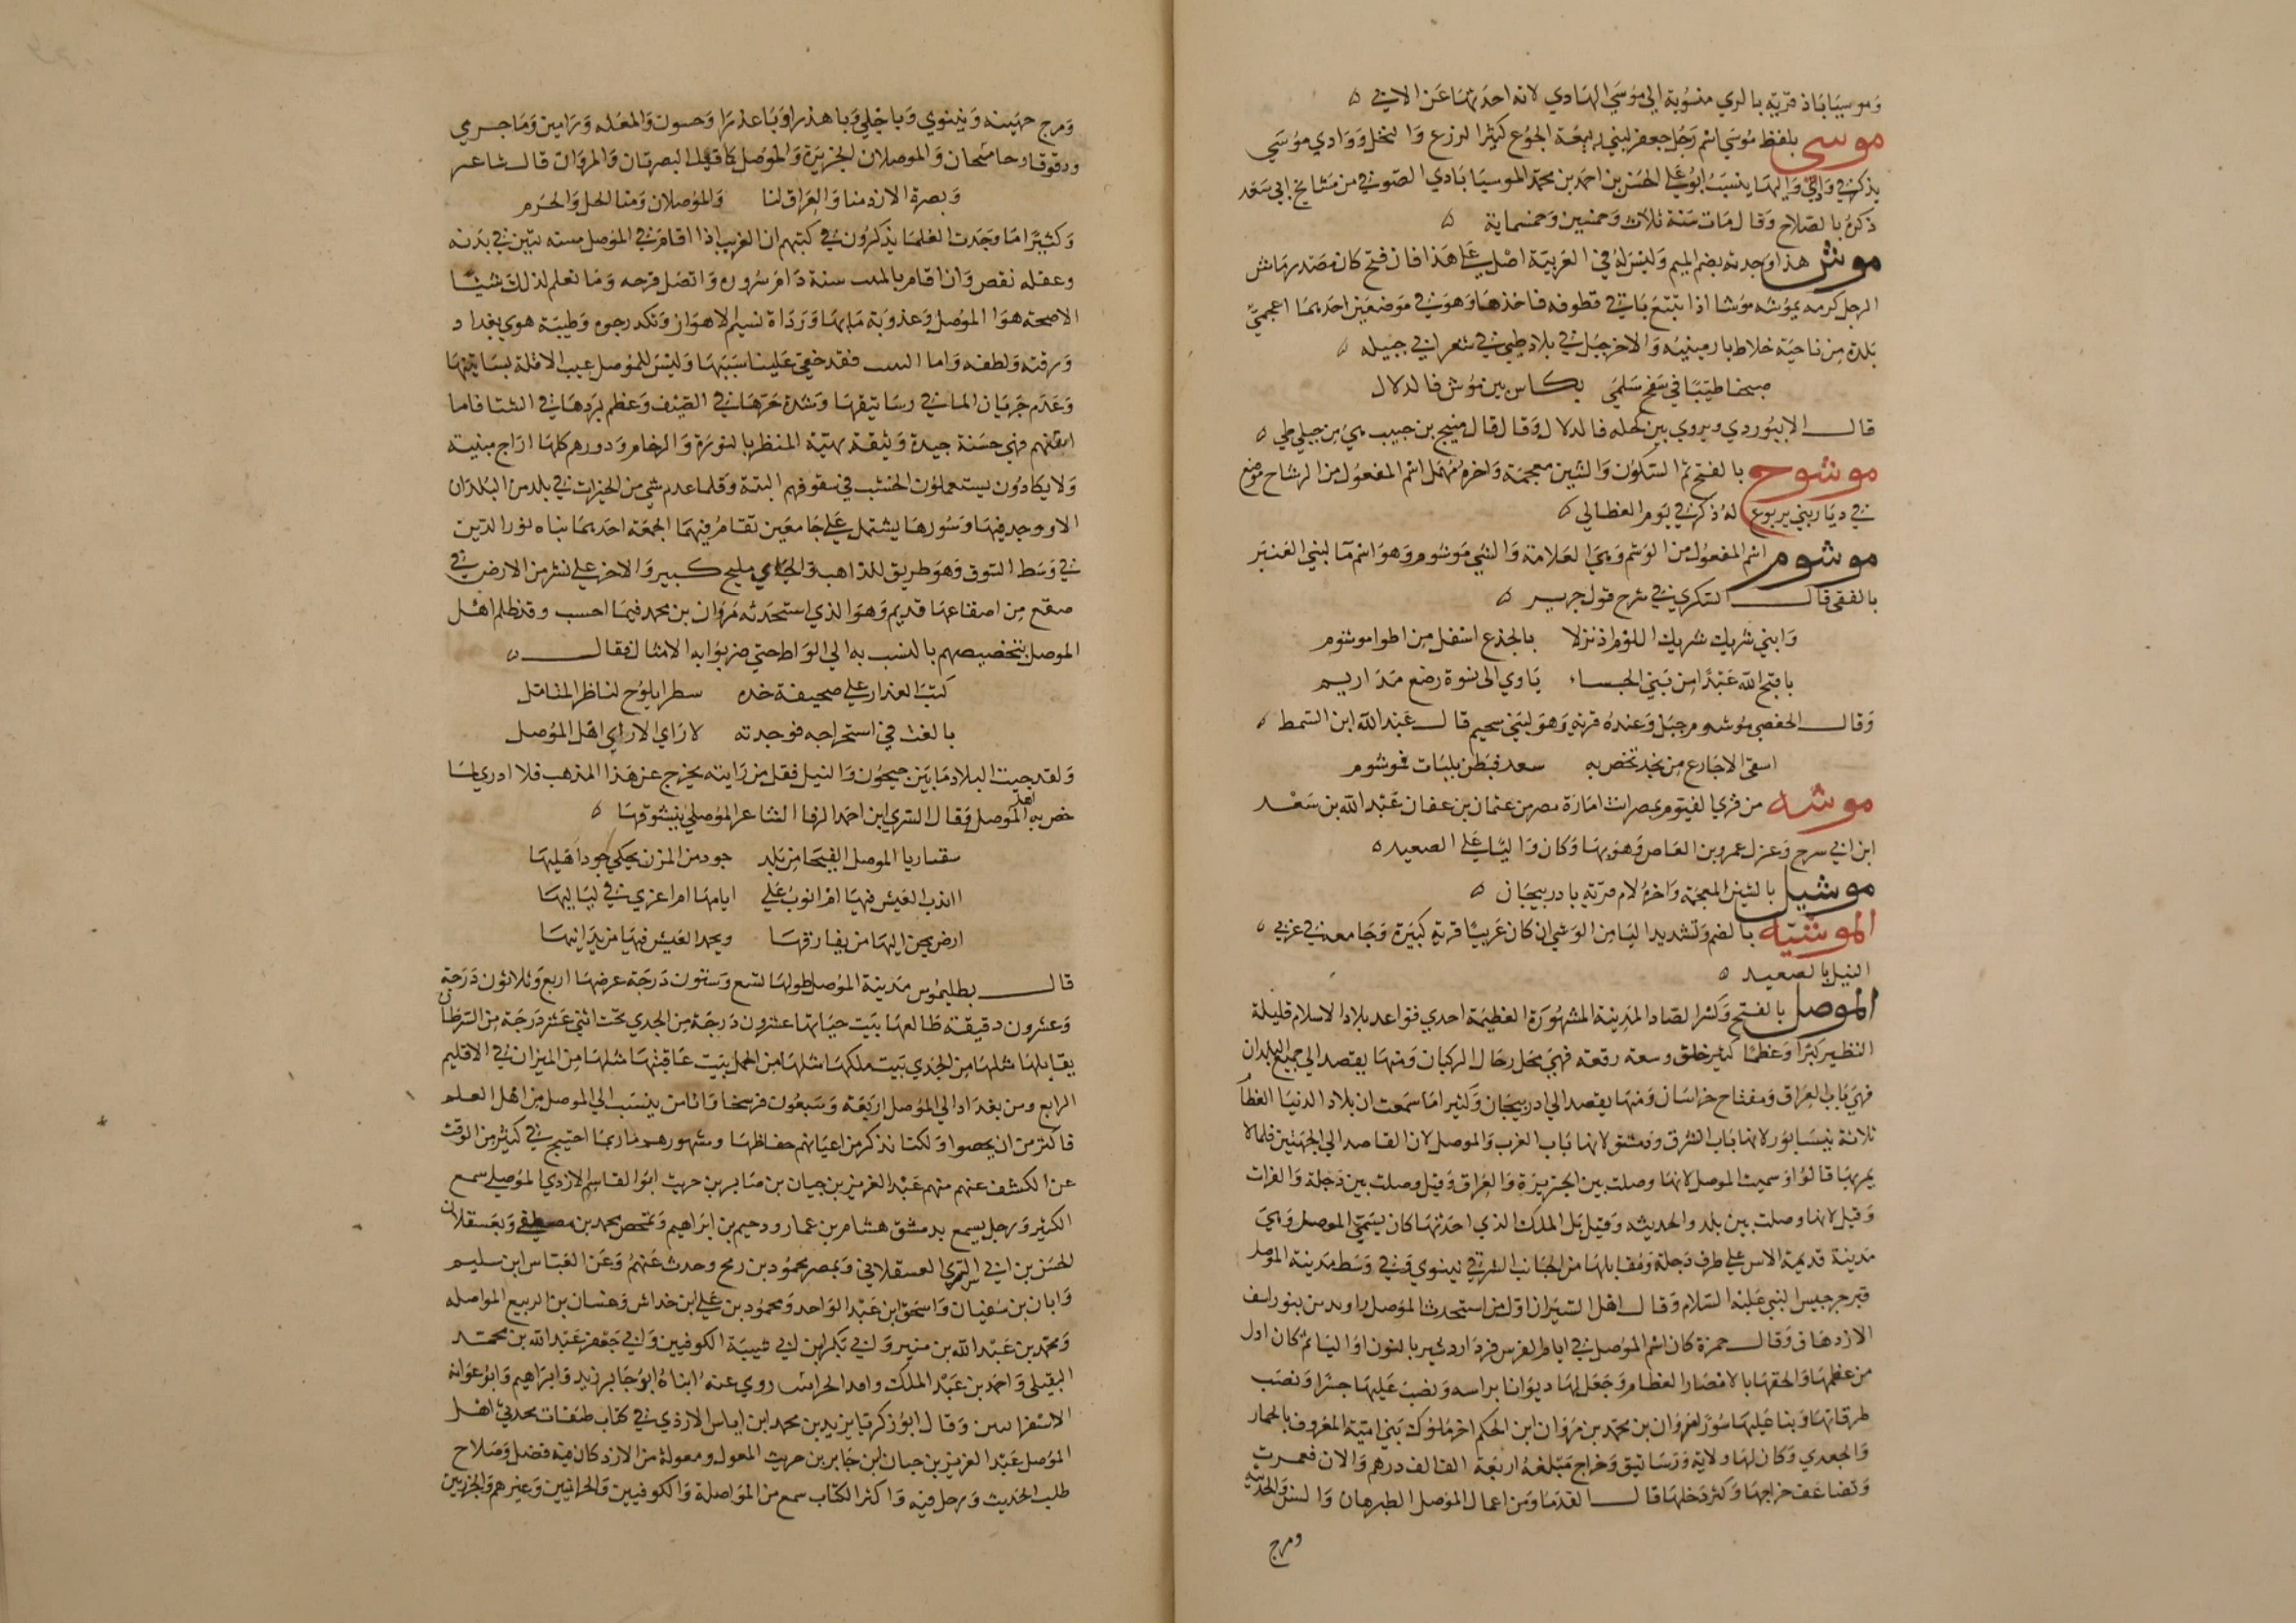 وموسياباذ قرية بالري منسوبة الي موسي الهادي لانه احدثها عن الابي ٥
موسى بلفظ موسي اسم رجل جعفر لبني ربيعة الجوع كثير الزرع والنخل ووادي موسي
يذكر في وادي واليها ينسب ابو علي الحسن بن احمد بن محمد الموسيابادي الصوفي من مشايخ ابي سعد
ذكره بالصلاح وقال مات سنة ثلاث وخمسين وخمسماية ٥
موش هذا وجدته بضم الميم وليس له في العربية اصل علي هذا فان فتح كان مصدر ماش
الرجل كرمه يموشه موشا اذا تتبع باقي قطوفه فاخذها وهو في موضعين احديهما اعجمي
بلدة من ناحية خلاط بارمينيه والاخر جبل في بلاد طي في شعر ابي جبيله ٥
صبحنا طيبا في سفح سلمي بكاس بين موش فالدلال
قال الابيوردي ويروي بين كحله فالدلال وقال لقال منيح بن حبيب هي من جبلي طي ٥
موشوح بالفتح ثم السكون والشين معجمة واخره مهمل اسم المفعول من الوشاح موضع
في ديار بني يربوع له ذكر في يوم العظالي ٥
موشوم اسم المفعول من الوشم وهي العلامة والشي موشوم وهو اسم ما لبني العنبر
بالفقي قال السكري في شرح قول جرير ٥
وابني شريك شريك اللؤم اذ نزلا بالجذع اسفل من اطوا موشوم
يا قبح الله عبدا من بني الجساء ياوي الى نسوة رضع مداريم
وقال الحفصي موشوم جبل وعنده قرية وهو لبني سحيم قال عبد الله ابن السمط ٥
اسقى الاجارع من نجد تخص به سعد فبطن بلبات فموشوم
موشه من قري الفيوم بمصر ات امارة مصر من عثمان بن عفان عبد الله بن سعد
ابن ابي سرح وعزل عمرو بن العاص وهو بها وكان واليا علي الصعيد ٥
موشيل بالشين المعجمة واخره لام قرية باذربيجان ٥
الموشية بالضم وتشديد اليا من الوشي ان كان عربيا قرية كبيرة وجامعه في غربي ٥
النيل بالصعيد ٥
الموصل بالفتح وكسر الصاد المدينة المشهورة العظيمة احدي قواعد بلاد الاسلام قليلة
النظير كبرا وعظما كثير خلق وسعه رقعته فهي محل رحال الركبان ومنها يقصد الي جميع البلدان
فهي باب العراق ومفتاح خراسان ومنها يقصد الي اذربيجان وكثيرا ما سمعت ان بلاد الدنيا العظا
ثلاثة نيسابور لانها باب الشرق ودمشق لانها باب الغرب والموصل لان القاصد الي الجهتين قلما لا
يمر بها قالوا وسميت الموصل لانها وصلت بين الجزيرة والعراق وقيل وصلت بين دجلة والفرات
وقيل لانها وصلت بين بلد والحديثه وقيل بل الملك الذي احدثها كان يسمي الموصل وهي
مدينة قديمة الاس علي طرف دجلة ومقابلها من الجانب الشرقي نينوي وفي وسط مدينة الموصل
قبر جرجيس النبي عليه السلام وقال اهل السير ان اول من استحدث الموصل راوند بن بيوراسف
الازدهاق وقال حمزة كان اسم الموصل في ايام الفرس نرد اردشير بالنون او اليا ثم كان اول
من عظمها والحقها بالامصار العظام وجعل لها ديوانا براسه ونصب عليها جسرا ونصب
طرقاتها وبنا عليها سورا مروان بن محمد بن مروان ابن الحكم اخر ملوك بني امية المعروف بالحمار
والجعدي وكان لها ولاية ورساتيق وخراج مبلغه اربعة الف الف درهم والان فعمرت
وتضاعف خراجها وكثر دخلها قال القدما ومن اعمال الموصل الطبرهان والسن والحديثه
ومرج
ومرج جهينه ونينوي وباجلي وباهذرا وباعذرا وحسون والمعله ورامين وماجرمي
ودقوقا وخانيجان والموصلان الجزيرة والموصل كما قيل البصرتان والمروان قال شاعر
وبصرة الازد منا والعراق لنا والموصلان ومنا الحل والحرم
وكثيرا ما وجدت العلما يذكرون في كتبهم ان الغريب اذا اقام في الموصل سنه تبين في بدنه
وعقله نقص وان اقام بالتبت سنة دام سروره واتصل فرحه وما نعلم لذلك شيئا
الا صحه هوا الموصل وعذوبة مايها ورداة نسيم الاهواز وتكدر جوه وطيبة هوي بغداد
ورقته ولطفه واما التبت فقد خفي علينا سببها وليس للموصل عيب الا قلة بساتينها
وعدم جريان الما في رساتيقها وشدة حرها في الصيف وعظم بردها في الشتا فاما
ابنيتهم فهي حسنة جيدة وثيقة بهية المنظر بالنورة والرخام ودورهم كلها ازاج مبنية
ولا يكادون يستعملون الخشب في سقوفهم البتة وقلما عدم شي من الخيرات في بلد من البلدان
الا ووجد فيها وسورها يشتمل علي جامعين تقام فيهما الجمعة احديهما بناه نور الدين
في وسط السوق وهو طريق للذاهب والجاي مليح كبير والاخر علي نشز من الارض في
صقع من اصقاعها قديم وهو الذي استحدثه مروان بن محمد فيما احسب وقد ظلم اهل
الموصل بتخصيصهم بالنسب به الي اللواط حتي ضربوا به الامثال فقال ٥
كتب العذار علي صحيفة خده سطرا يلوح لناظر المتامل
بالغت في استخراجه فوجدته لا راي الا راي اهل الموصل
ولقد جيت البلاد ما بين جيحون والنيل فقل من رايته يخرج عن هذا المذهب فلا ادري لما
خص به اهل الموصل وقال السري ابن احمد الرفا الشاعر الموصلي يتشوقها ٥
سقى ربا الموصل الفيحا من بلد جود من المزن يحكي جود اهليها
اانذب العيش فيها ام انوب علي ايامها ام اعزي في لياليها
ارض يحن اليها من يفارقها ويحمد العيش فيها من يدانيها
قال بطليموس مدينة الموصل طولها تسع وستون درجة عرضها اربع وثلاثون درجة
وعشرون دقيقة طالعها بيت حياتها عشرون درجة من الجدي تحت اثني عشر درجة من السرطان
يقابلها مثلها من الجدي بيت ملكها مثلها من الحمل بيت عاقبتها مثلها من الميزان في الاقليم
الرابع ومن بغداد الي الموصل اربعة وسبعون فرسخا واما من ينسب الي الموصل من اهل العلم
فاكثر من ان يحصوا ولكنا نذكر من اعيانهم حفاظها ومشهورهم ما ربما احتيج في كثير من الوقت
عن الكشف عنهم منهم عبد العزيز بن حيان بن صابر بن حريث ابو القاسم الازدي الموصلي سمع
الكثير ورحل يسمع بدمشق هشام بن عمار ودحيم بن ابراهيم وبحمص محمد بن مصطفي وبعسقلان
الحسن بن ابي السري العسقلاني وبمصر محمود بن رمح وحدث عنهم وعن العباس ابن سليم
وابان بن سفيان واسحق ابن عبد الواحد ومحمود بن علي ابن خداش وغسان بن الربيع المواصله
ومحمد بن عبد الله بن منير وابي بكر ابن ابي شيبة الكوفيين وابي جعفر عبد الله بن محمد
البقيلي واحمد بن عبد الملك وافد الحراني روي عنه ابناه ابو جابر زيد وابراهيم وابو عوانه
الاسفرايني وقال ابو زكريا يزيد بن محمد ابن اياس الازدي في كتاب طبقات محدثي اهل
الموصل عبد العزيز بن حيان ابن جابر بن حريث المعول ومعولة من الازد كان فيه فضل وصلاح
طلب الحديث ورحل فيه واكثر الكتاب سمع من المواصلة والكوفيين والحرانيين وغيرهم والجزريين